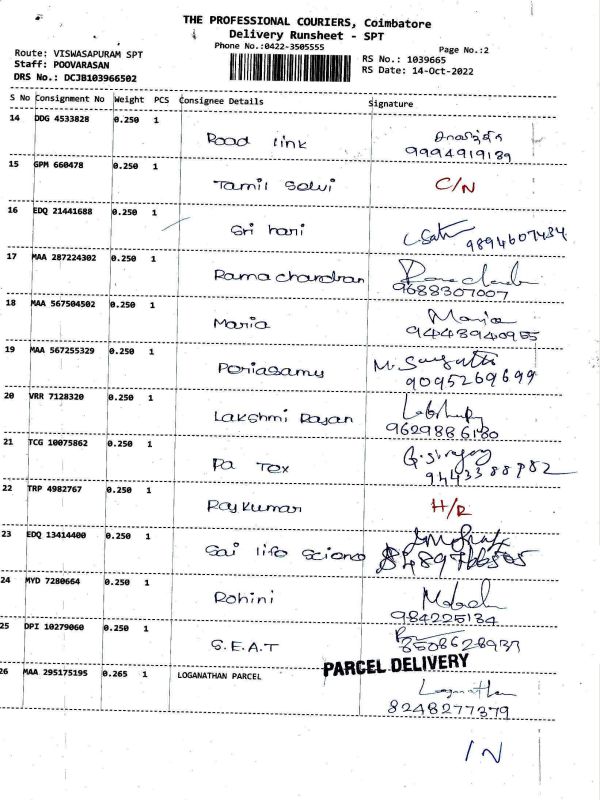 THE PROFESSIONAL COURIERS, Coimbatore
Delivery Runsheet - SPT
Phone No.:0422-3505555
Page No.:2
Route: VISWASAPURAM SPT
Staff: POOVARASAN
DRS No.: DCJB103966502
RS No.: 1039665
RS Date: 14-Oct-2022
S No Consignment No Weight PCS Consignee Details Signature
14 DDG 4533828 0.250 1
Road link
9994919139
15 GPM 660478 0.250 1
Tamil Selvi C/N
16 EDQ 21441688 0.250 1
Sri hari
9894607434
17 MAA 287224302 0.250 1
Ramachandran
9688307007
18 MAA 567504502 0.250 1
Maria Maria
9443940955
19 MAA 567255329 0.250 1
Periasamy
9095269699
20 VRR 7128320 0.250 1
Lakshmi Rajan
9629886180
21 TCG 10075862 0.250 1
Pa Tex
9443388982
22 TRP 4982767 0.250 1
Rajkumar
23 EDQ 13414400 0.250 1
Sai life Scienc
24 MYD 7280664 0.250 1
Rohini
984225134
25 DPI 10279060 0.250 1
S.E.A.T
8508628937
PARCEL DELIVERY
26 MAA 295175195 0.265 1 LOGANATHAN PARCEL
Loganathan
8248277379
IN